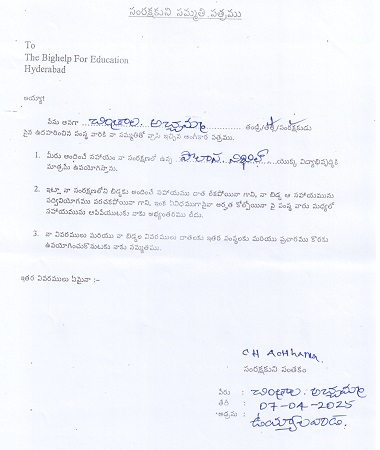 సంరక్షకుని సమ్మతి పత్రము
To
The Bighelp For Education
Hyderabad
అయ్యా!
నేను అనగా చింత్రాల అచ్చమ్మ తండ్రి/తల్లి/సంరక్షకుడు
పైన ఉదహరించిన సంస్థ వారికి నా సమ్మతితో వ్రాసి ఇచ్చిన అంగీకార పత్రము.
1. మీరు అందించే సహాయం నా సంరక్షణలో ఉన్న పాలాన నిఖిల్ యొక్క విద్యాభివృద్ధికి
మాత్రమే ఉపయోగిస్తాను.
2. ఇట్లా నా సంరక్షణలోని బిడ్డకు అందించే సహాయము దాత లేకపోయినా గాని, నా బిడ్డ ఆ సహాయమును
సద్వినియోగము పరచకపోయినా గాని, ఇంకే విధముగానైనా అర్హత కోల్పోయినా పై సంస్థ వారు మధ్యలో
సహాయమును ఆపివేయుటకు నాకు అభ్యంతరము లేదు.
3. నా వివరములు మరియు నా బిడ్డల వివరములు దాతలకు ఇతర సంస్థలకు మరియు ప్రచారము కొరకు
ఉపయోగించుకొనుటకు నాకు సమ్మతము.
ఇతర వివరములు ఏమైనా :-
CH AcHhama
సంరక్షకుని సంతకం
పేరు : చింత్రాల అచ్చమ్మ
తేదీ : 07-04-2025
అడ్రసు : ఉయ్యాలవాడ.